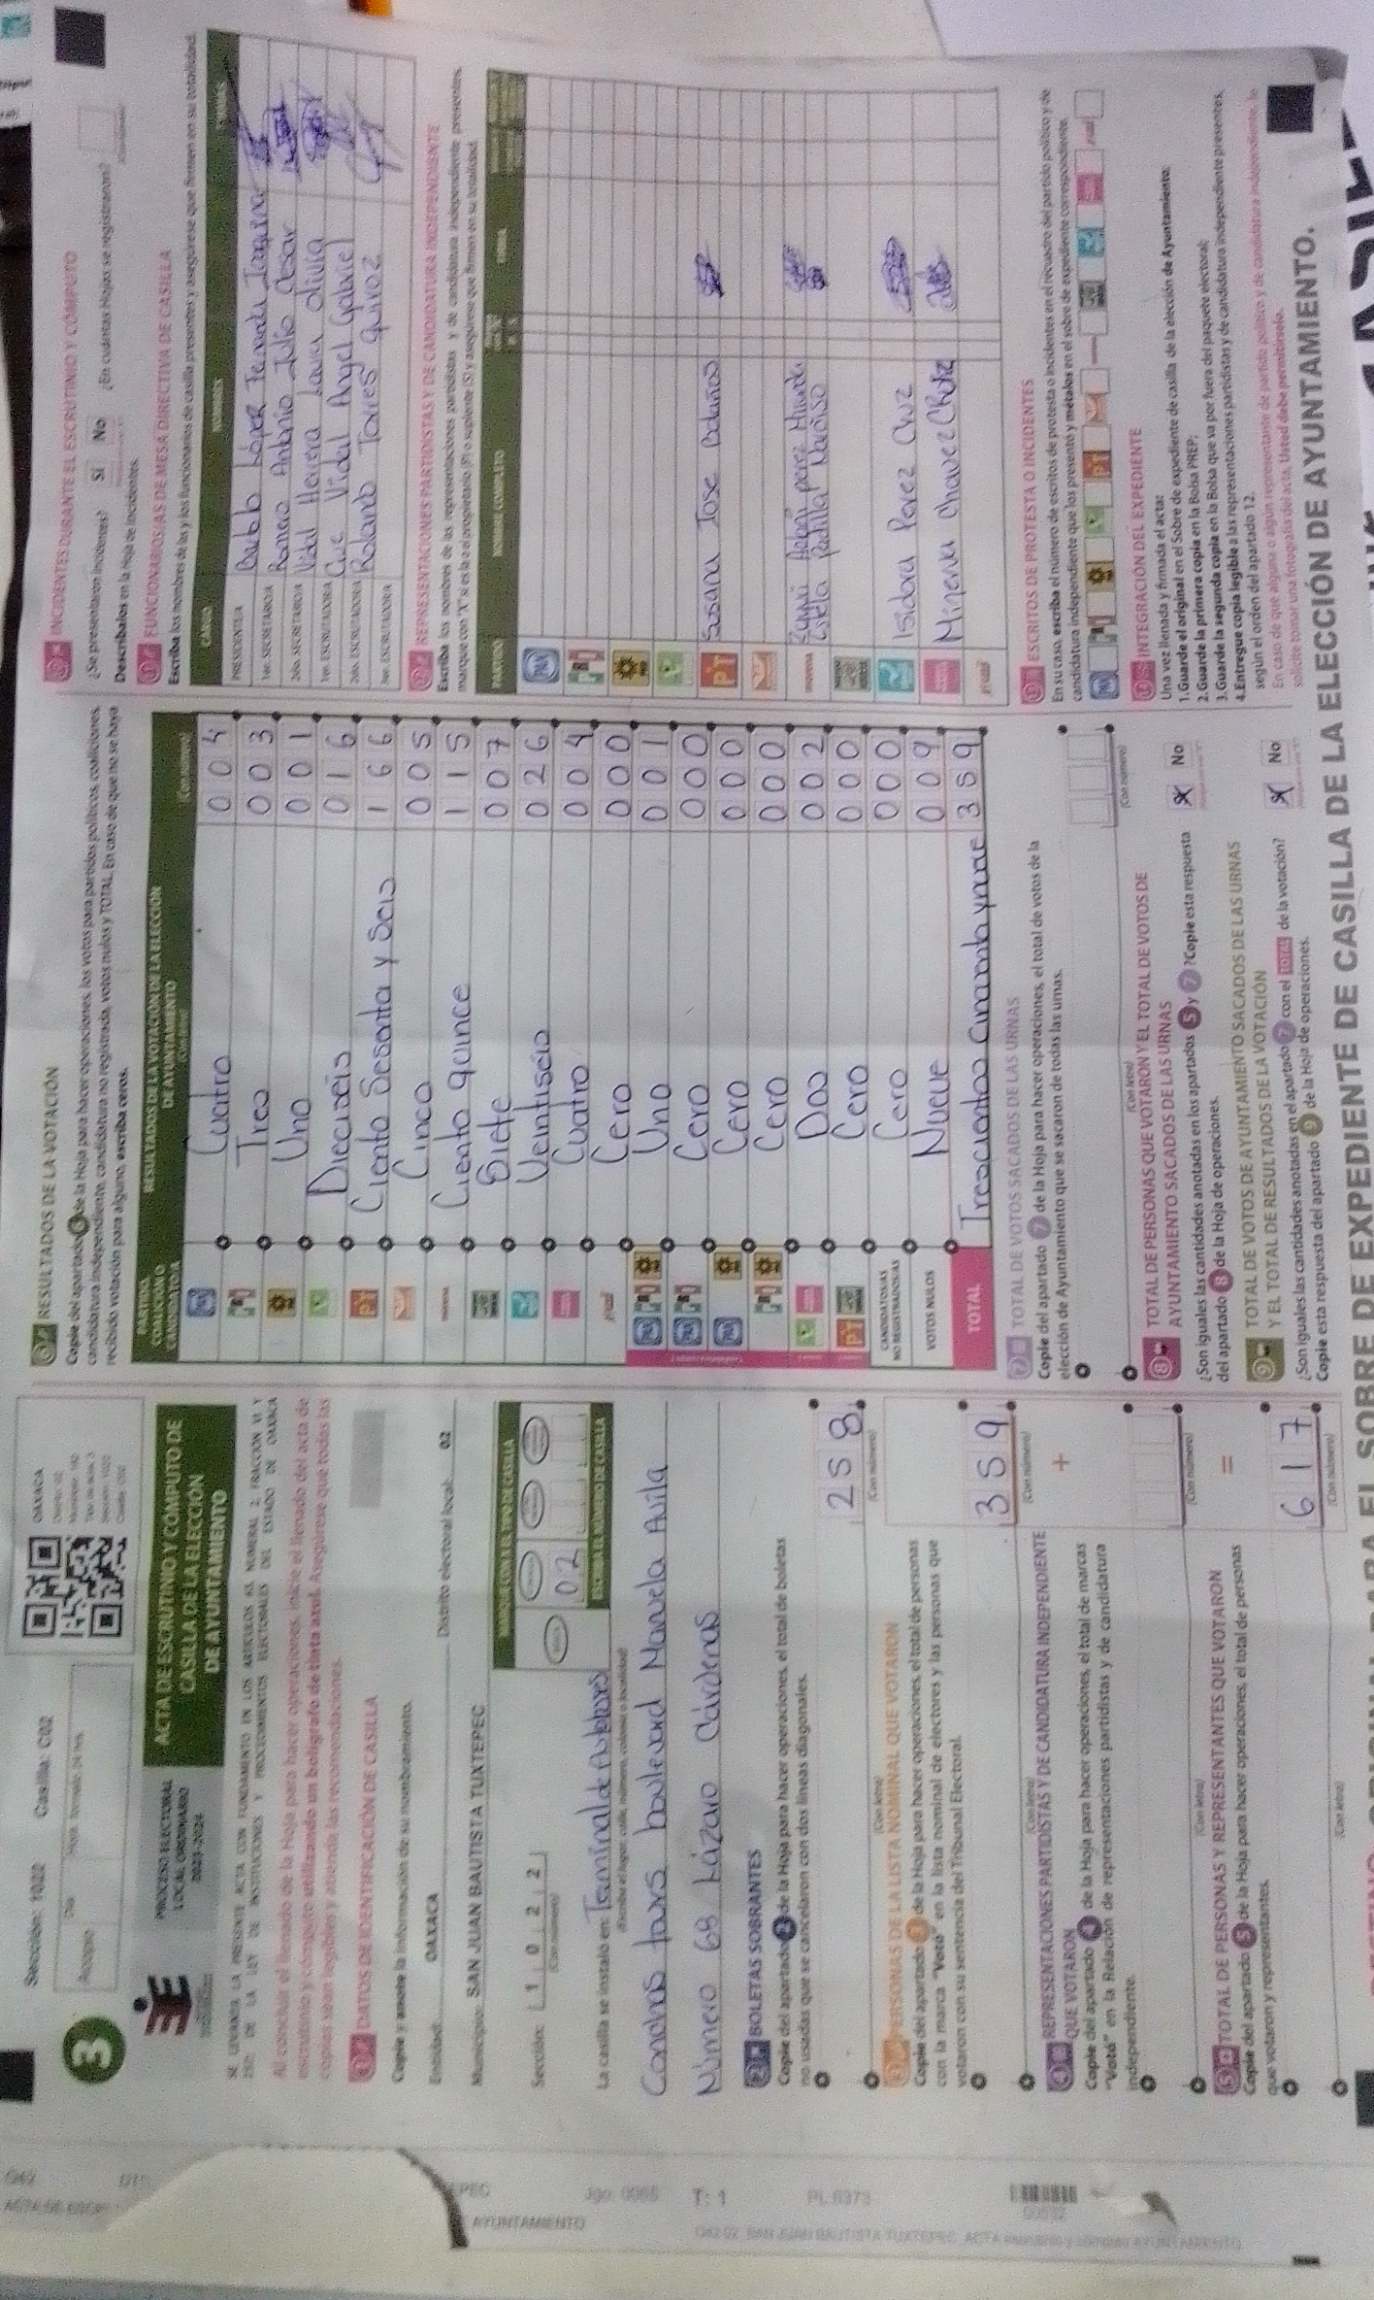 Sección: 1022 Casilla: C02
OAXACA
3
Acopio
PROCESO ELECTORAL
LOCAL ORDINARIO
2023-2024
ACTA DE ESCRUTINIO Y CÓMPUTO DE
CASILLA DE LA ELECCIÓN
DE AYUNTAMIENTO
Al concluir el llenado de la Hoja para hacer operaciones, inicie el llenado del acta de
escrutinio y cómputo utilizando un bolígrafo de tinta azul. Asegúrese que todas las
copias sean legibles y atienda las recomendaciones.
1 DATOS DE IDENTIFICACIÓN DE CASILLA
Copie y anote la información de su nombramiento.
Entidad: OAXACA Distrito electoral local: 02
Municipio: SAN JUAN BAUTISTA TUXTEPEC
Sección: 1 0 2 2
(Con número)
02
ESCRIBA EL NÚMERO DE CASILLA
La casilla se instaló en: Terminal de Autobuses
Conchas tours boulevard Manuela Avila
Número 68 Lázaro Cárdenas
2 BOLETAS SOBRANTES
Copie del apartado 2 de la Hoja para hacer operaciones, el total de boletas
no usadas que se cancelaron con dos líneas diagonales.
258
(Con letra) (Con número)
3 PERSONAS DE LA LISTA NOMINAL QUE VOTARON
Copie del apartado 3 de la Hoja para hacer operaciones, el total de personas
con la marca "Votó" en la lista nominal de electores y las personas que
votaron con su sentencia del Tribunal Electoral.
359
(Con letra) (Con número)
4 REPRESENTACIONES PARTIDISTAS Y DE CANDIDATURA INDEPENDIENTE
QUE VOTARON
+
Copie del apartado 4 de la Hoja para hacer operaciones, el total de marcas
"Votó" en la Relación de representaciones partidistas y de candidatura
independiente.
(Con letra) (Con número)
5 TOTAL DE PERSONAS Y REPRESENTANTES QUE VOTARON
=
Copie del apartado 5 de la Hoja para hacer operaciones, el total de personas
que votaron y representantes.
617
(Con letra) (Con número)
6 RESULTADOS DE LA VOTACIÓN
Copie del apartado 6 de la Hoja para hacer operaciones, los votos para partidos políticos, coaliciones,
candidatura independiente, candidatura no registrada, votos nulos y TOTAL. En caso de que no se haya
recibido votación para alguno, escriba ceros.
PARTIDO,
COALICIÓN O
CANDIDATO/A
RESULTADOS DE LA VOTACIÓN DE LA ELECCIÓN
DE AYUNTAMIENTO
(Con letra) (Con número)
PAN Cuatro 004
PRI Tres 003
PRD Uno 001
Dieciseis 016
PT Ciento Sesenta y Seis 166
Cinco 005
morena Ciento quince 115
Siete 007
Veintiseis 026
Cuatro 004
Cero 000
PAN PRI PRD Uno 001
PAN PRI Cero 000
PAN PRD Cero 000
PRI PRD Cero 000
Dos 002
PT Cero 000
CANDIDATOS/AS
NO REGISTRADOS/AS Cero 000
VOTOS NULOS Nueve 009
TOTAL Trescientos cincuenta y nueve 359
7 TOTAL DE VOTOS SACADOS DE LAS URNAS
Copie del apartado 7 de la Hoja para hacer operaciones, el total de votos de la
elección de Ayuntamiento que se sacaron de todas las urnas.
(Con letra) (Con número)
8 TOTAL DE PERSONAS QUE VOTARON Y EL TOTAL DE VOTOS DE
AYUNTAMIENTO SACADOS DE LAS URNAS
¿Son iguales las cantidades anotadas en los apartados 5 y 7? Copie esta respuesta
del apartado 8 de la Hoja de operaciones.
Sí No
9 TOTAL DE VOTOS DE AYUNTAMIENTO SACADOS DE LAS URNAS
Y EL TOTAL DE RESULTADOS DE LA VOTACIÓN
¿Son iguales las cantidades anotadas en el apartado 7 con el TOTAL de la votación?
Copie esta respuesta del apartado 9 de la Hoja de operaciones.
Sí No
INCIDENTES DURANTE EL ESCRUTINIO Y CÓMPUTO
¿Se presentaron incidentes? Sí No ¿En cuántas Hojas se registraron?
Descríbalos en la Hoja de Incidentes.
FUNCIONARIOS/AS DE MESA DIRECTIVA DE CASILLA
Escriba los nombres de las y los funcionarios de casilla presentes y asegúrese que firmen en su totalidad.
CARGO NOMBRES FIRMAS
PRESIDENTE/A Bubb López Fernada Joaquina
1er. SECRETARIO/A Romero Antonio Julio Cesar
2do. SECRETARIO/A Vidal Herrera Laura Olivia
1er. ESCRUTADOR/A Cue Vidal Angel Gabriel
2do. ESCRUTADOR/A Rolando Torres quiroz
3er. ESCRUTADOR/A
REPRESENTACIONES PARTIDISTAS Y DE CANDIDATURA INDEPENDIENTE
Escriba los nombres de las representaciones partidistas y de candidatura independiente presentes,
marque con "X" si es la o el propietario (P) o suplente (S) y asegúrese que firmen en su totalidad.
PARTIDO NOMBRE COMPLETO FIRMA
PAN
PRI
PRD
PT Susana Jose Bolaños
morena
Estela Padilla Narciso
Isidora Perez Cruz
Minerva Chavez
ESCRITOS DE PROTESTA O INCIDENTES
En su caso, escriba el número de escritos de protesta o incidentes en el recuadro del partido político y de
candidatura independiente que los presentó y métalos en el sobre de expediente correspondiente.
INTEGRACIÓN DEL EXPEDIENTE
Una vez llenada y firmada el acta:
1. Guarde el original en el Sobre de expediente de casilla de la elección de Ayuntamiento;
2. Guarde la primera copia en la Bolsa PREP;
3. Guarde la segunda copia en la Bolsa que va por fuera del paquete electoral;
4. Entregue copia legible a las representaciones partidistas y de candidatura independiente presentes,
según el orden del apartado 12.
En caso de que alguna o algún representante de partido político y de candidatura independiente, le
solicite tomar una fotografía del acta, Usted debe permitírselo.
EL SOBRE DE EXPEDIENTE DE CASILLA DE LA ELECCIÓN DE AYUNTAMIENTO.
AYUNTAMIENTO
T: 1